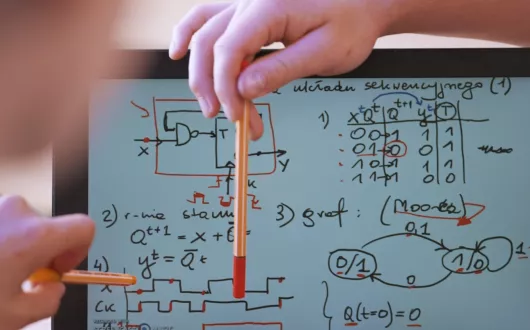 układu sekwencyjnego (1)
1) x Qᵗ Qᵗ⁺¹ yᵗ T
0 0 1 1 1
0 1 0 1 1
1 0 1 1 1
1 1 1 0 0
T
X
Y
K
2) r-nia stanu
3) graf: (Moore'a)
Qᵗ⁺¹ = x +
yᵗ = Q̅ᵗ
0,1
0/1
1/0
1
0
4)
CK
Q(t=0) = 0